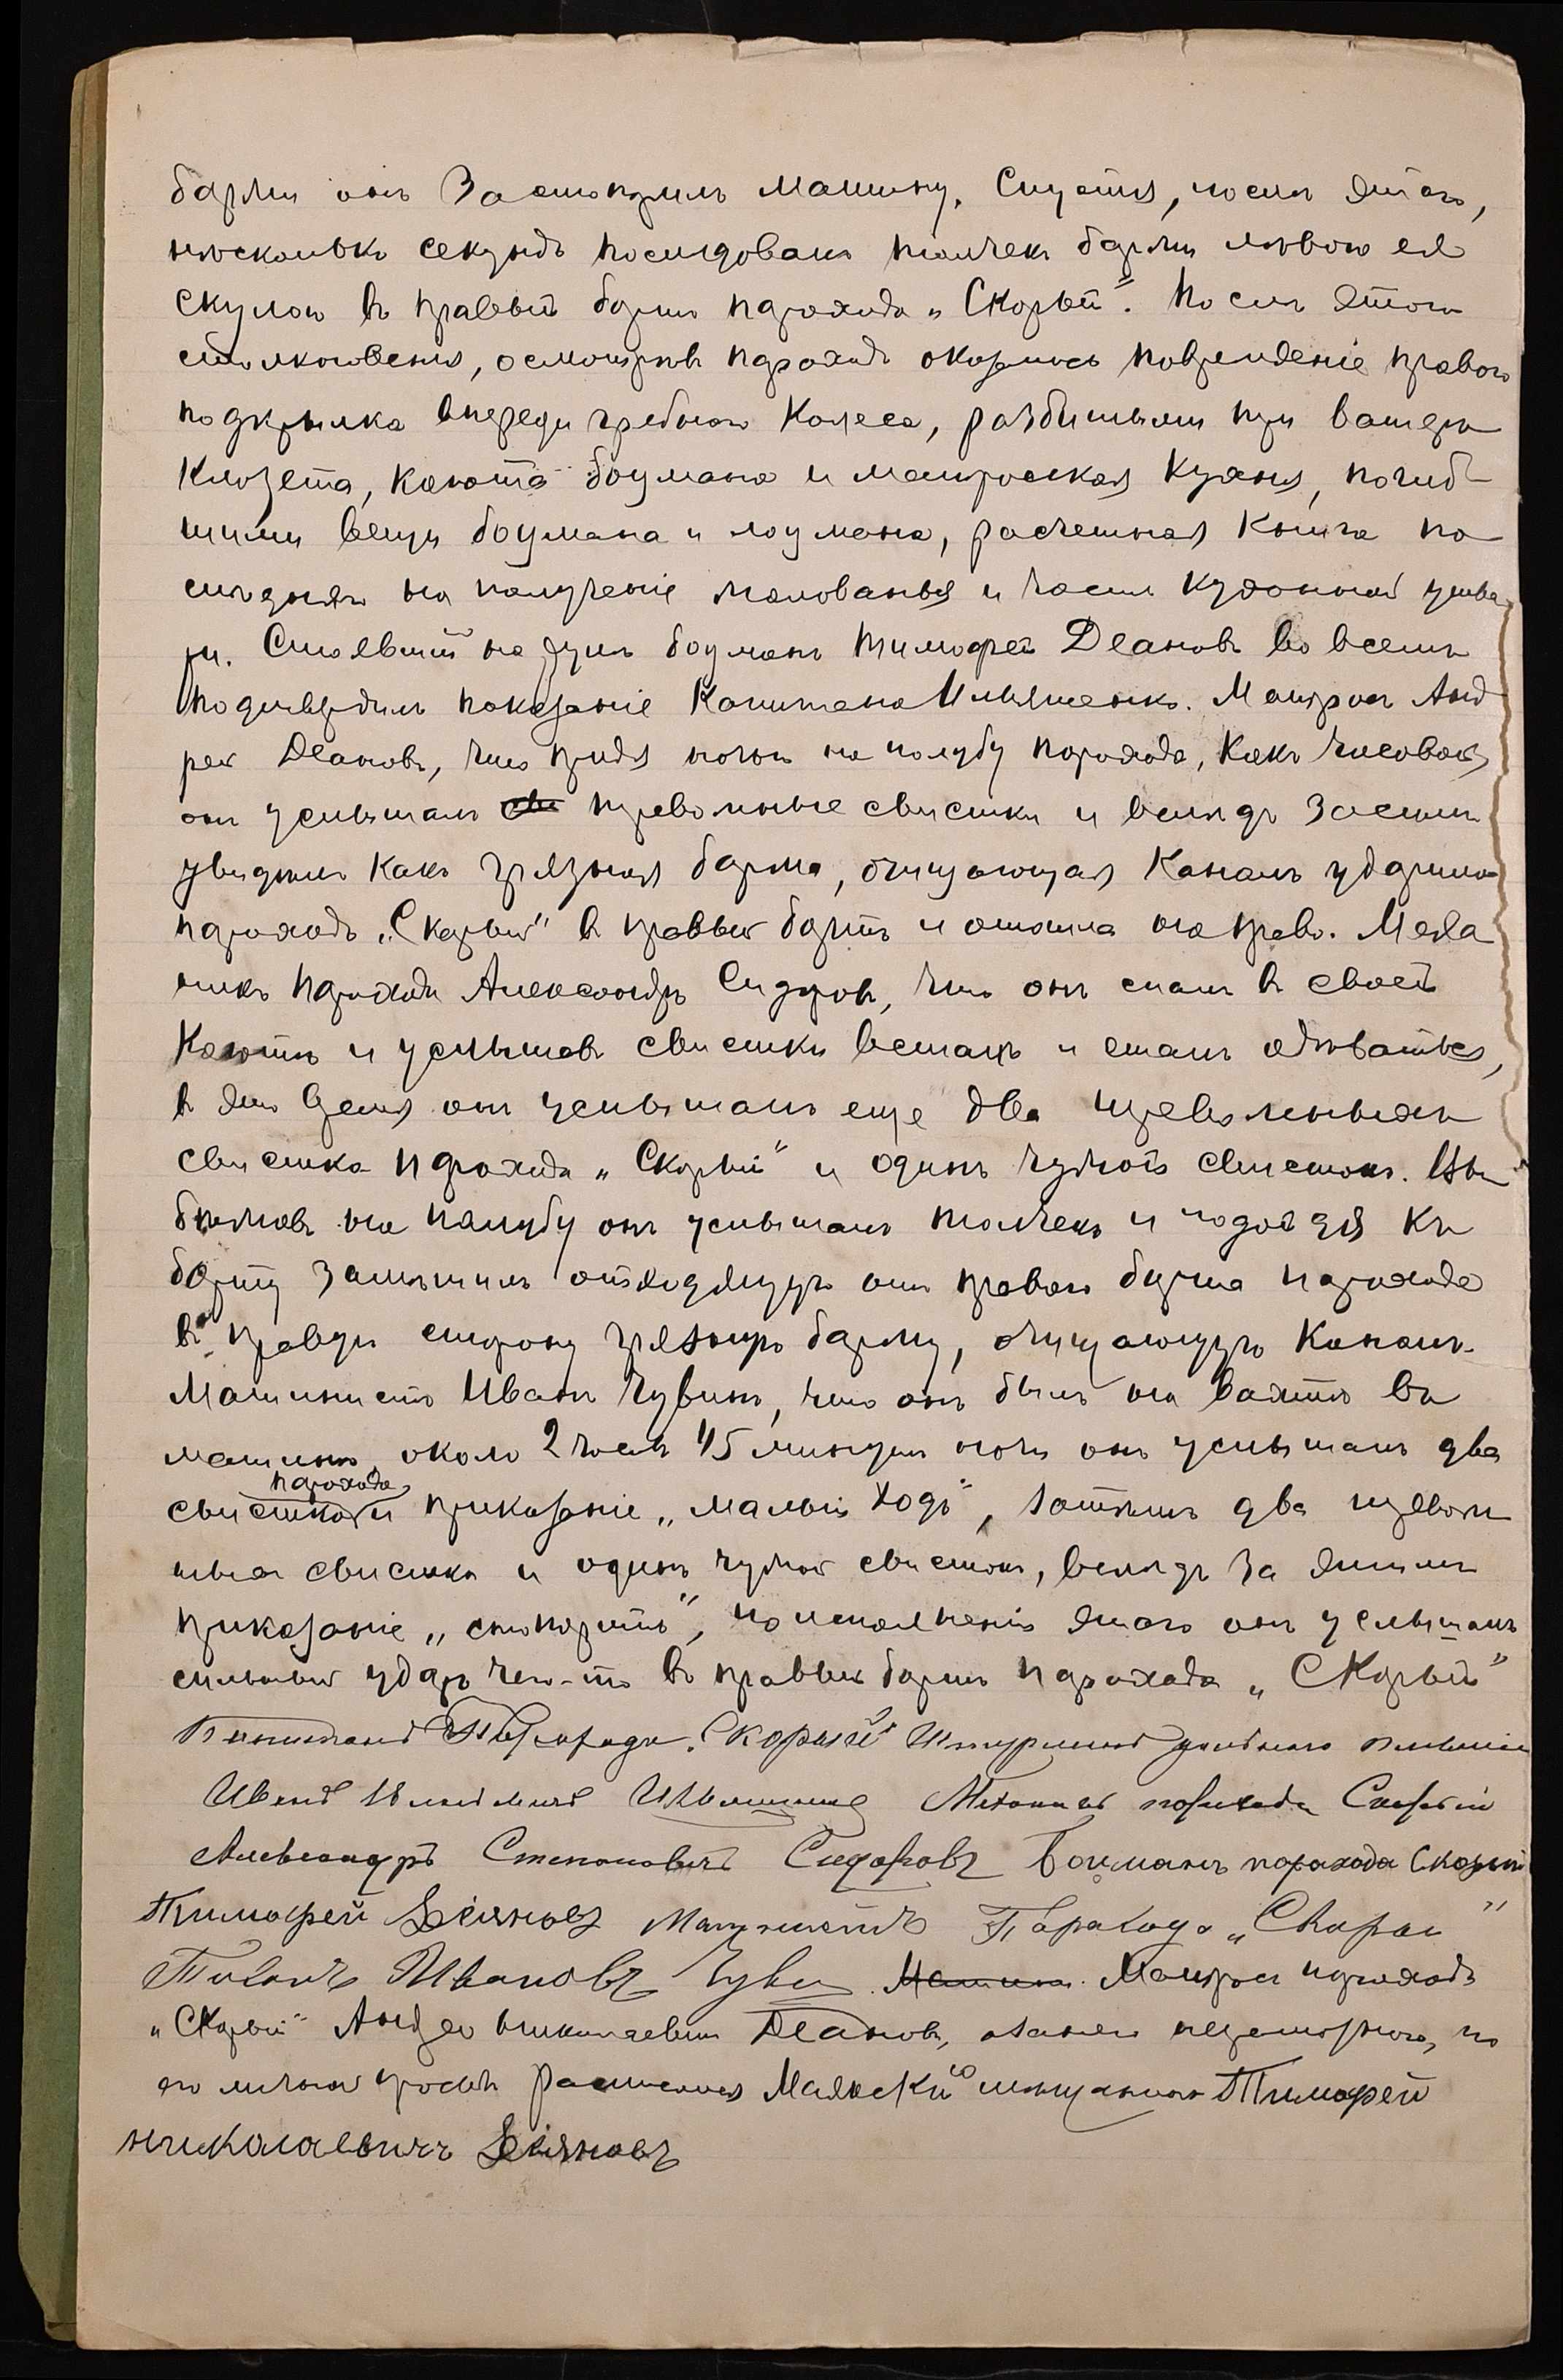 баржи онъ застопорилъ машину. Спустя, послѣ этого,
нѣсколько секундъ послѣдовалъ толчекъ баржи лѣвою ея
скулою въ правый бортъ парохода „Скорый“. Послѣ этого
столкновенія, осмотрѣвъ пароходъ оказалось поврежденіе праваго
подкрылка впереди гребнаго колеса, разбитыми три ватеръ
клозета, каюта боцмана и матросская кухня, погиб-
шими вещи боцмана и лоцмана, расчетная книга по-
слѣдняго на полученіе жалованья и часть кухонной утва
ри. Стоявшій на рулѣ боцманъ Тимофей Деановъ во всемъ
подтвердилъ показаніе капитана Ильяшенко. Матросъ Анд
рей Деановъ, что придя ночью на палубу парохода, какъ часовой,
онъ услышалъ тревожные свистки и вслѣдъ засимъ
увидѣлъ какъ грязная баржа, очищающая каналъ ударила
пароходъ „Скорый“ въ правый бортъ и отошла на право. Меха
никъ парохода Александръ Сидоровъ, что онъ спалъ въ своей
каютѣ и услышавъ свистки всталъ и сталъ одѣваться,
въ это время онъ услышалъ еще два тревожныхъ
свистка парохода „Скорый“ и одинъ чужой свистокъ. Вы
бѣжавъ на палубу онъ услышалъ толчекъ и подойдя къ
борту замѣтилъ отходящую отъ праваго борта парохода
въ правую сторону грязную баржу, очищающую каналъ.
Машинистъ Иванъ Чувинъ, что онъ былъ на вахтѣ въ
машинѣ, около 2 часовъ 45 минутъ ночи онъ услышалъ два
парохода
свистка и приказаніе „малый ходъ“, затѣмъ два тревож
ныхъ свистка и одинъ чужой свистокъ, вслѣдъ за этимъ
приказаніе „стопорить“, по исполненіи этого онъ услышалъ
сильный ударъ чего-то въ правый бортъ парохода „Скорый“
Капитанъ Парохода „Скорый“ Штурманъ дальняго плаванія
Иванъ Ильяшенко Механикъ парохода Скорый
Александръ Степановичъ Сидоровъ Боцманъ парохода Скорый
Тимофей Деяновъ Машинистъ Парахода „Скорай“
Ивановъ Чувин Матросъ пароходъ
„Скорый“ Андрей Николаевичъ Деановъ, а за него неграмотнаго, по
его личной просьбѣ расписался Маякскій мѣщанинъ Тимофей
Николаевичъ Деяновъ